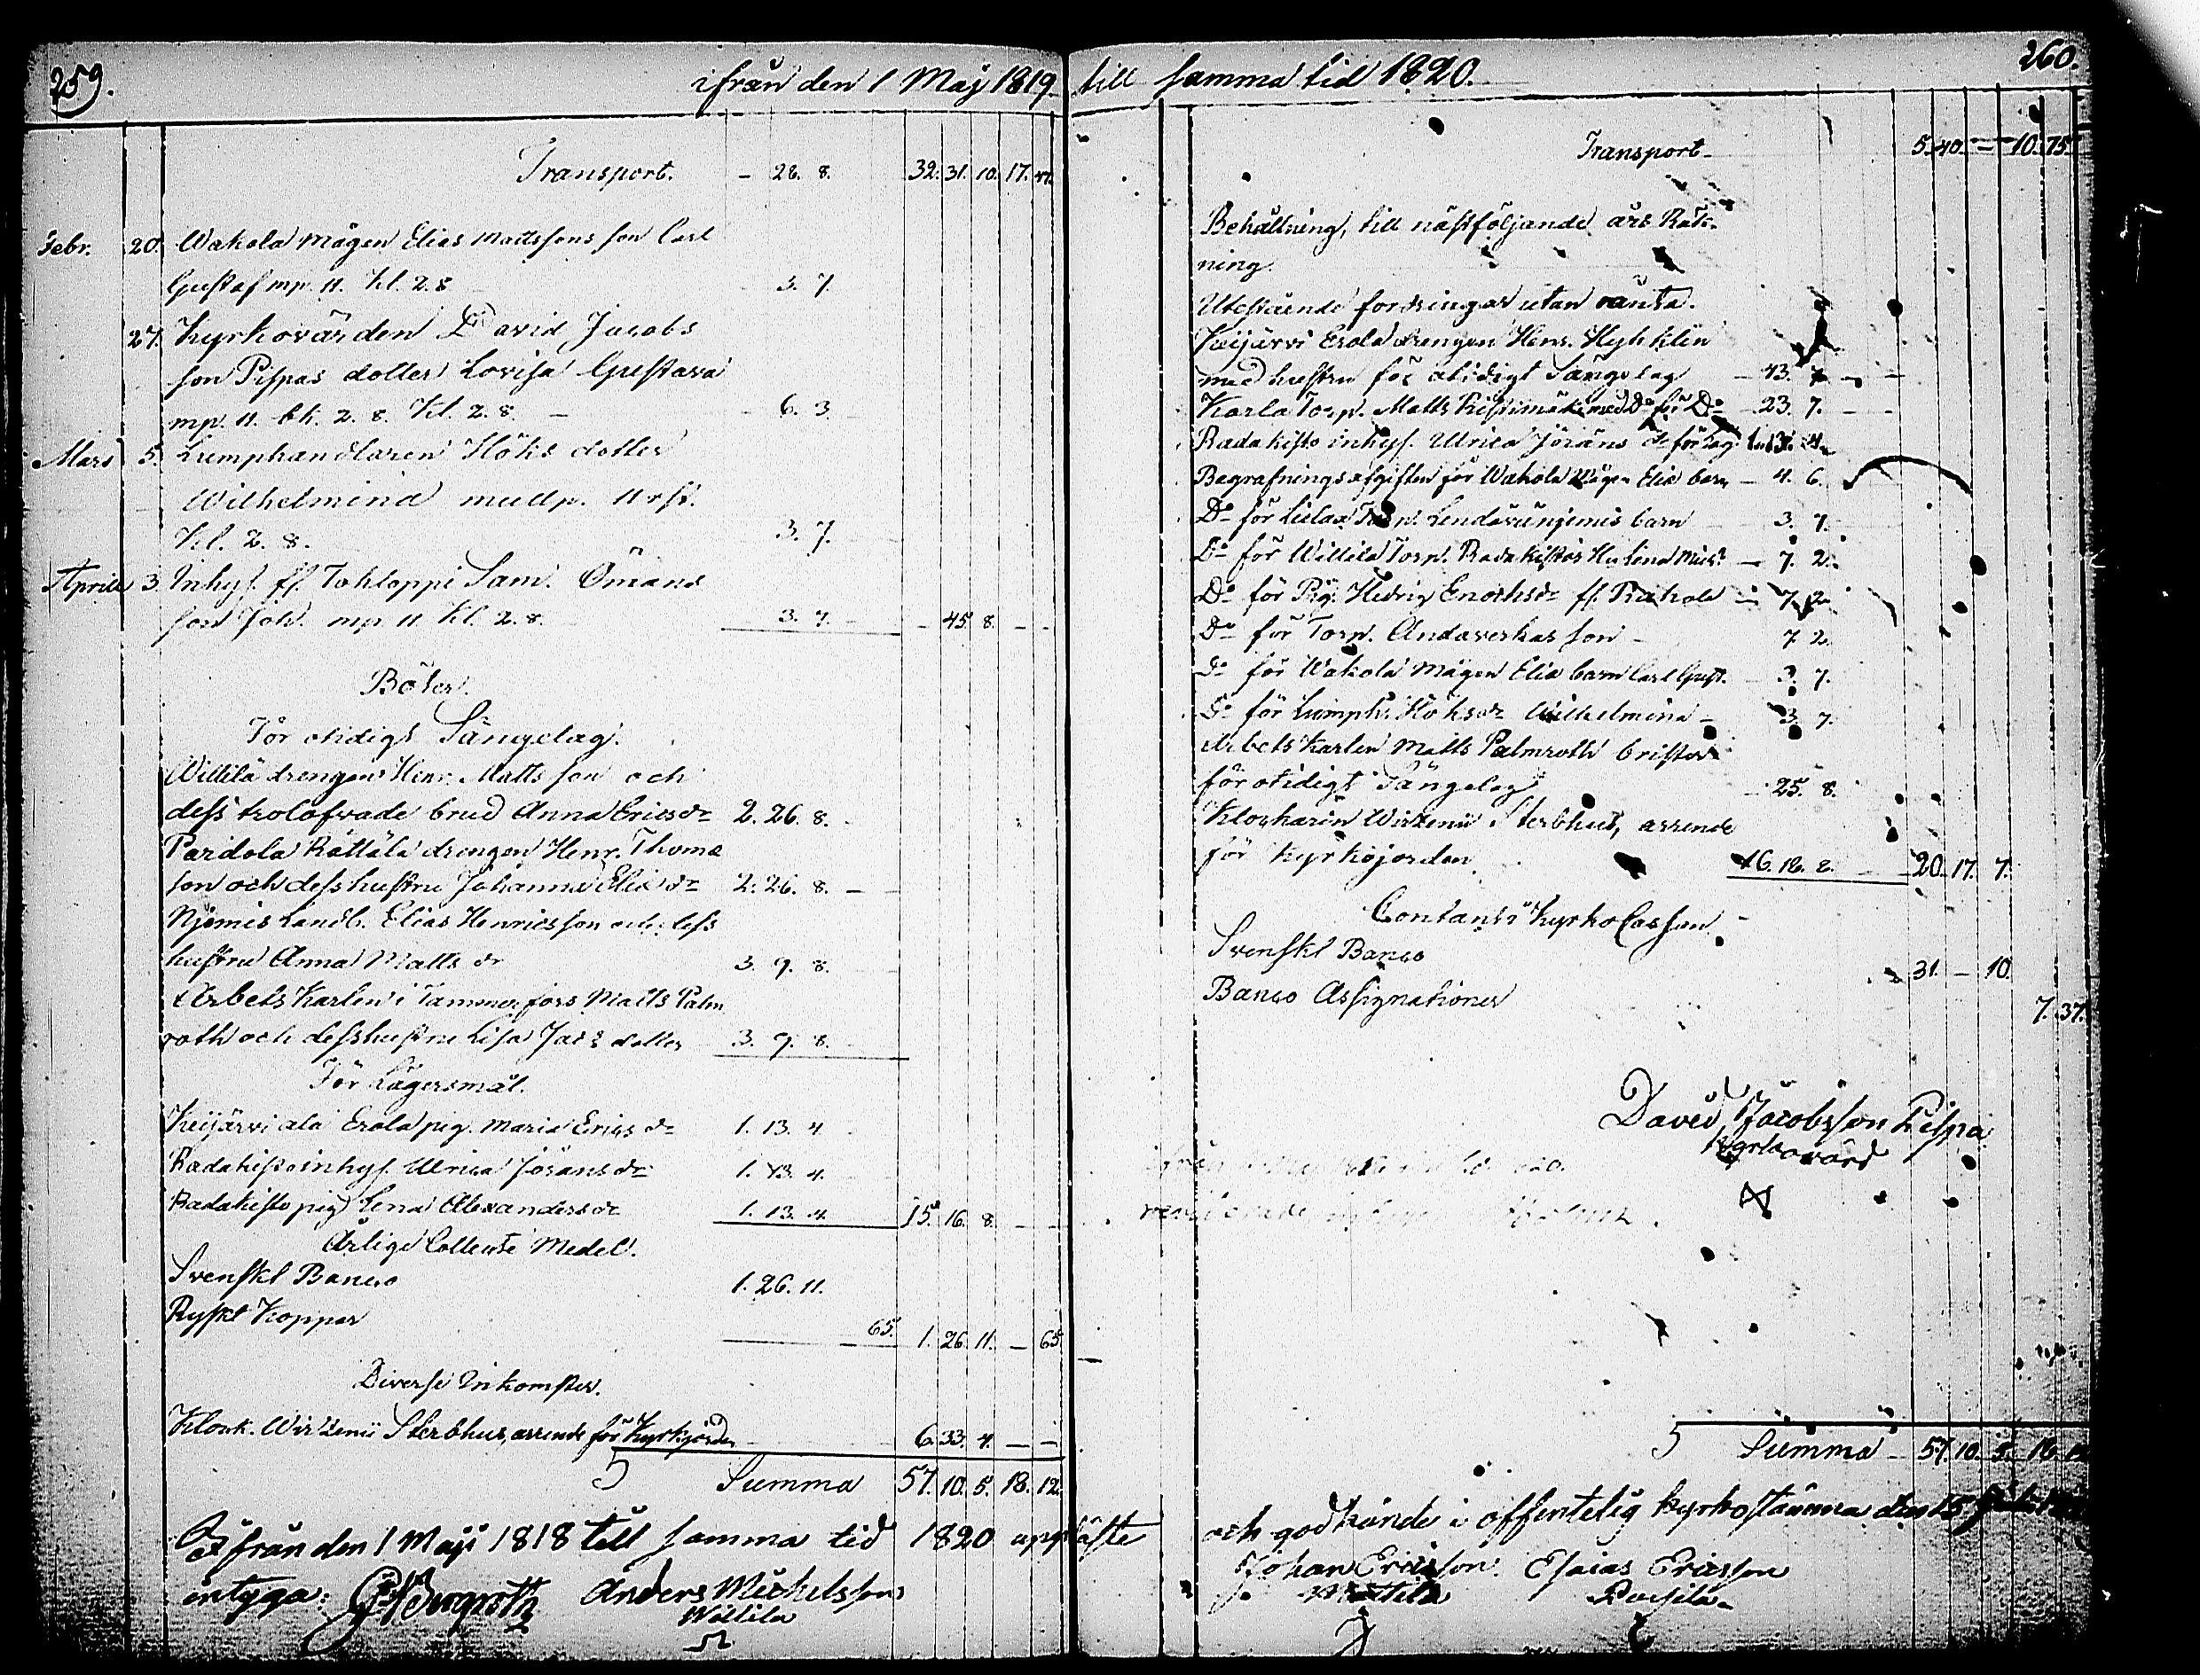 259.
ifrån den 1 Maj 1819
Transport. – 28. 8. 32. 31. 10. 17. 47.
Febr. 20. Wahola Mågen Elias Mattssons son Carl
Gustaf mp. 11. Kl. 2.8 3. 7.
27. Kyrkovärden David Jacobs
son Pispas dotter Lovisa Gustava
mp. 11. bk. 2. 8. Kl. 2. 8. – 6. 3
Mars 5. Lumphandlaren Höks dotter
Wilhelmina mullp.
Kl. 2. 8. 3. 7.
Aprill 3 Inhys. fr. Tohloppi Sam. Ömans
son Joh. mp. 11. Kl. 2. 8. 3. 7. – – 45. 8. – –
Böter.
För otidigt Sängelag.
Willilä drengen Henr. Matts son och
dess trolofvade brud Anna Ericsdr 2. 26. 8.
Pardola Rättälä drengen Henr. Thoma
son och dess hustru Johanna Eliædr 2. 26. 8. –
Njemis Landb. Elias Henricsson och dess
hustru Anna Matts dr 3. 9. 8.
Arbets Karlen i Tammerfors Matts Palm
roth och dess hustru Lisa Jacs dotter 3. 9. 8.
För Lägersmål.
Keijärvi ala Erola pig. Maria Erics dr 1. 13. 4.
Radakisto inhys. Ulrica Jörans dr 1. 13. 4.
Radakisto pig. Lena Alexanders dr 1. 13. 4. 15. 16. 8. –
Årlige Collecte Medel.
Svenskt Banco 1. 26. 11.
Ryskt Koppar 65. 1. 26. 11. – 65
Diverse Inkomster.
Klock. Wirzenii Sterbhus, arrende för Kyrkjorden 6. 33. 4. – –
Summa 57. 10. 5. 18. 12.
ifrån den 1 Maji 1818 till samma tid 1820 uppläste
intyga: Bergroth Anders Mickelsson
Willila
till samma tid 1820.
260.
Transport – 5. 40. – 10. 75.
Behållning, till nästföljande års Räk-
ning.
Utestående fordringar utan ränta.
Keijärvi Erola drengen Henr.
med hustru för otidigt Sängelag – 43. 7
Karla Torp. Matts med Do för Do – 23. 7. – –
Radakisto inhys. Ulrica Jörans dr för 1. 13. 4.
Begrafningsafgiften för Wahola Mågen Eliæ barn – 4. 6.
Do för Torp. barn 3. 7.
Do för Willilä Torp. Radakistos – 7. 2.
Do för Pig. Hedvig Enochsdr fr. – 7. 2.
Do för Torp. Andaverkas son – 7. 2.
Do för Wahola Mågen Eliæ barn Carl Gust. – 3. 7.
Do för Lumph. Höks dr Wilhelmina – 3. 7.
Arbets Karlen Matts Palmroth brister
för otidigt Sängelag 25. 8.
Klockarin Wirzenii Sterbhus, arrende
för Kyrkojorden 16. 18. 8. – 20. 17. 7.
Contant i Kyrko Cassan.
Svenskt Banco 31. – 10.
Banco Assignationer 7. 37.
David Jacobsson Pispa
Kyrkovärd
Summa – 57. 10. 5. 18. 12
och godkände i offentelig kyrkostämma den
Johan Ericsson Esaias Ericsson